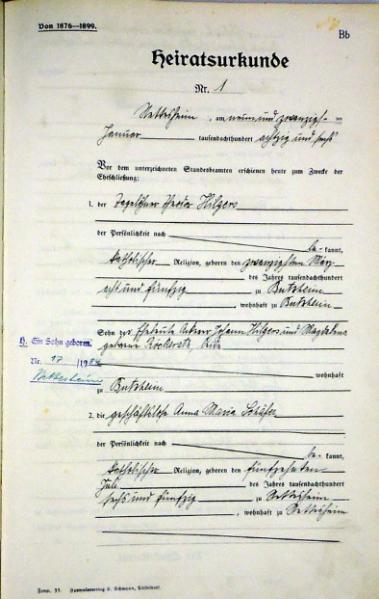 Von 1876—1899.
Bb
Heiratsurkunde
Nr. 1
Nettesheim, am neun und zwanzigsten
Januar tausendachthundert achtzig und sechs
Vor dem unterzeichneten Standesbeamten erschienen heute zum Zwecke der
Eheschließung:
1. der Tagelöhner Theodor Hilgers
der Persönlichkeit nach
be kannt,
katholischer Religion, geboren den zwanzigsten März
des Jahres tausendachthundert
acht und fünfzig zu Butzheim
, wohnhaft zu Butzheim
Sohn der Eheleute Ackerer Johann Hilgers und Magdalena
geborene
wohnhaft
zu Butzheim
H. Ein Sohn geboren
Nr. 17 /
Nettesheim
2. die geschäftslose Anna Maria Schäfer
der Persönlichkeit nach
be kannt,
katholischer Religion, geboren den fünfzehnten
Juli des Jahres tausendachthundert
sechs und fünfzig zu Nettesheim
, wohnhaft zu Nettesheim